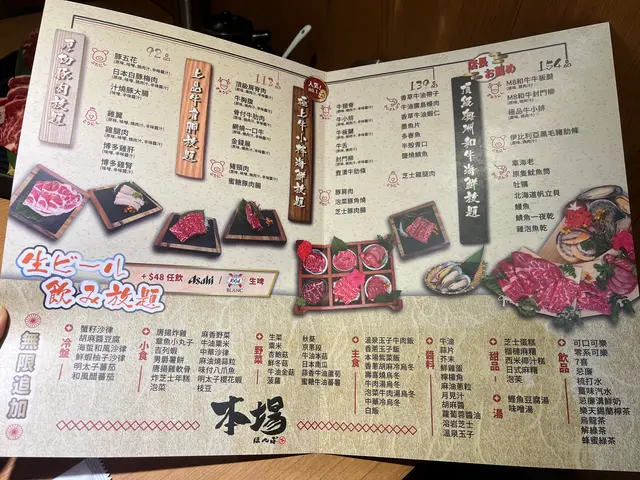 92
豚五花
日本白豚梅肉
汁燒豚大腸
雞翼
雞腿肉
博多雞肝
博多雞腎
上品牛胃腩放題
113
頂級豚脊肉
牛胸腹
骨付牛肋肉
御燒一口牛
金錢展
豬頸肉
蜜糖豚肉腸
極上牛小排海鮮放題
人氣
NO.1
139
牛頸脊
牛小排
牛板腱
牛舌
封門柳
壹濃牛肋條
豚肩肉
泡菜豚角燒
芝士豚肉腸
香草牛油帶子
牛油露絲蠔肉
香草牛油蝦仁
墨魚片
多春魚
半殼青口
鹽燒鯖魚
芝士雞腿肉
店長
お薦め
頂級奧州和牛海鮮放題
156
M8和牛牛板腱
M8和牛封門柳
極品牛小排
伊比利亞黑毛豬肋條
車海老
原隻魷魚筒
牡蠣
北海道帆立貝
鰻魚
鯖魚一夜乾
雞泡魚乾
生ビール
飲み放題
+ $48 任飲 Asahi / 1664 BLANC 生啤
無限追加
冷盤
蟹籽沙律
胡麻醬豆腐
海蜇和風沙律
鮮蝦柚子沙律
明太子蕃茄
和風醋蕃茄
小食
唐揚炸雞
章魚小丸子
吉列蝦
男爵薯餅
唐揚雞軟骨
炸芝士年糕
泡菜
麻香野菜
牛油粟米
中華沙律
麻油燒蒜粒
味付八爪魚
明太子櫻花蝦
枝豆
野菜
生菜
粟米
杏鮑菇
鮮冬菇
牛油金菇
菠蘿
秋葵
京蔥段
牛油本菇
牛油日本南瓜
蒜香牛油蘆筍
蜜糖牛油蕃薯
本場
ほんば
主食
溫泉玉子牛肉飯
香蔥玉子飯
本場紫菜飯
胡麻豚肉冷烏冬
蔥香豚肉烏冬
牛肉湯烏冬
泡菜牛肉湯烏冬
中華冷烏冬
白飯
醬料
牛油
蒜片
芥末
鮮雞蛋
檸檬角
麻油蔥粒
月見汁
胡麻醬
蘿蔔蓉醬油
溶岩芝士
溫泉玉子
甜品
芝士蛋糕
榴槤麻糬
西米椰汁糕
日式麻糬
泡芙
湯
鰹魚豆腐湯
味噌湯
飲品
可口可樂
零系可樂
7喜
忌廉
梳打水
薑味汽水
忌廉溝鮮奶
樂天錫蘭檸茶
烏龍茶
解綠茶
蜂蜜綠茶